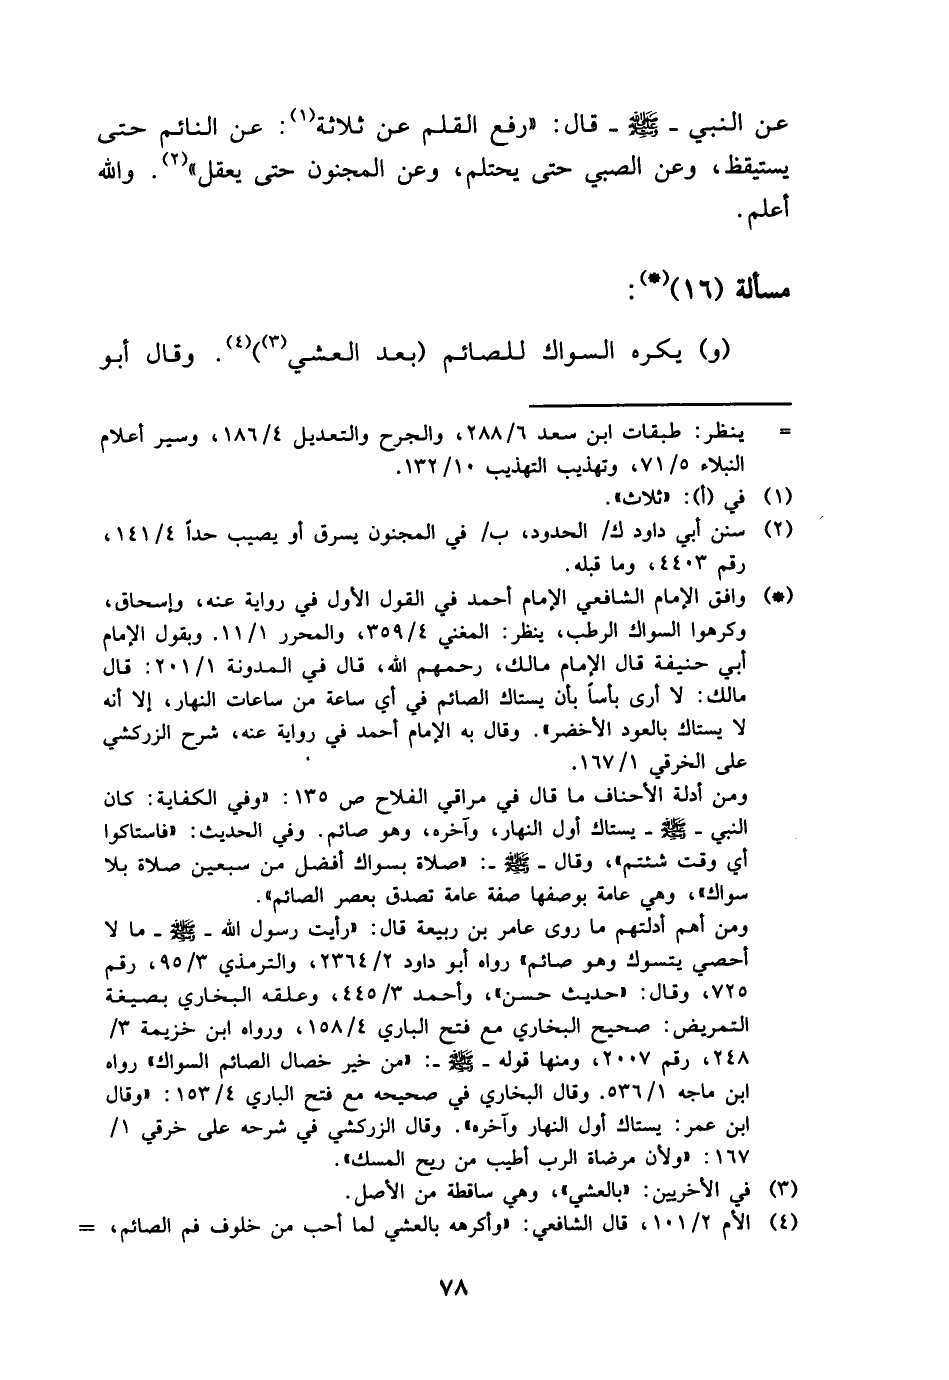 عن النبي ـ ﷺ ـ قال: «رفع القلم عن ثلاثة(١): عن النائم حتى
يستيقظ، وعن الصبي حتى يحتلم، وعن المجنون حتى يعقل»(٢). والله
أعلم.
مسألة (١٦)(*):
(و) يكره السواك للصائم (بعد العشي(٣))(٤). وقال أبو
= ينظر: طبقات ابن سعد ٢٨٨/٦، والجرح والتعديل ١٨٦/٤، وسير أعلام
النبلاء ٧١/٥، وتهذيب التهذيب ١٣٢/١٠.
(١) في (أ): «ثلاث».
(٢) سنن أبي داود ك/ الحدود، ب/ في المجنون يسرق أو يصيب حداً ١٤١/٤،
رقم ٤٤٠٣، وما قبله.
(*) وافق الإمام الشافعي الإمام أحمد في القول الأول في رواية عنه، وإسحاق،
وكرهوا السواك الرطب، ينظر: المغني ٣٥٩/٤، والمحرر ١١/١. وبقول الإمام
أبي حنيفة قال الإمام مالك، رحمهم الله، قال في المدونة ٢٠١/١: قال
مالك: لا أرى بأساً بأن يستاك الصائم في أي ساعة من ساعات النهار، إلا أنه
لا يستاك بالعود الأخضر». وقال به الإمام أحمد في رواية عنه، شرح الزركشي
على الخرقي ١٦٧/١.
ومن أدلة الأحناف ما قال في مراقي الفلاح ص ١٣٥: «وفي الكفاية: كان
النبي ـ ﷺ ـ يستاك أول النهار، وآخره، وهو صائم. وفي الحديث: «فاستاكوا
أي وقت شئتم»، وقال ـ ﷺ ـ: «صلاة بسواك أفضل من سبعين صلاة بلا
سواك»، وهي عامة بوصفها صفة عامة تصدق بعصر الصائم».
ومن أهم أدلتهم ما روى عامر بن ربيعة قال: «رأيت رسول الله ـ ﷺ ـ ما لا
أحصي يتسوك وهو صائم» رواه أبو داود ٢٣٦٤/٢، والترمذي ٩٥/٣، رقم
٧٢٥، وقال: «حديث حسن»، وأحمد ٤٤٥/٣، وعلقه البخاري بصيغة
التمريض: صحيح البخاري مع فتح الباري ١٥٨/٤، ورواه ابن خزيمة ٣/
٢٤٨، رقم ٢٠٠٧، ومنها قوله ـ ﷺ ـ: «من خير خصال الصائم السواك» رواه
ابن ماجه ٥٣٦/١. وقال البخاري في صحيحه مع فتح الباري ١٥٣/٤: «وقال
ابن عمر: يستاك أول النهار وآخره». وقال الزركشي في شرحه على خرقي ١/
١٦٧: «ولأن مرضاة الرب أطيب من ريح المسك».
(٣) في الأخريين: «بالعشي»، وهي ساقطة من الأصل.
(٤) الأم ١٠١/٢، قال الشافعي: «وأكرهه بالعشي لما أحب من خلوف فم الصائم، =
٧٨